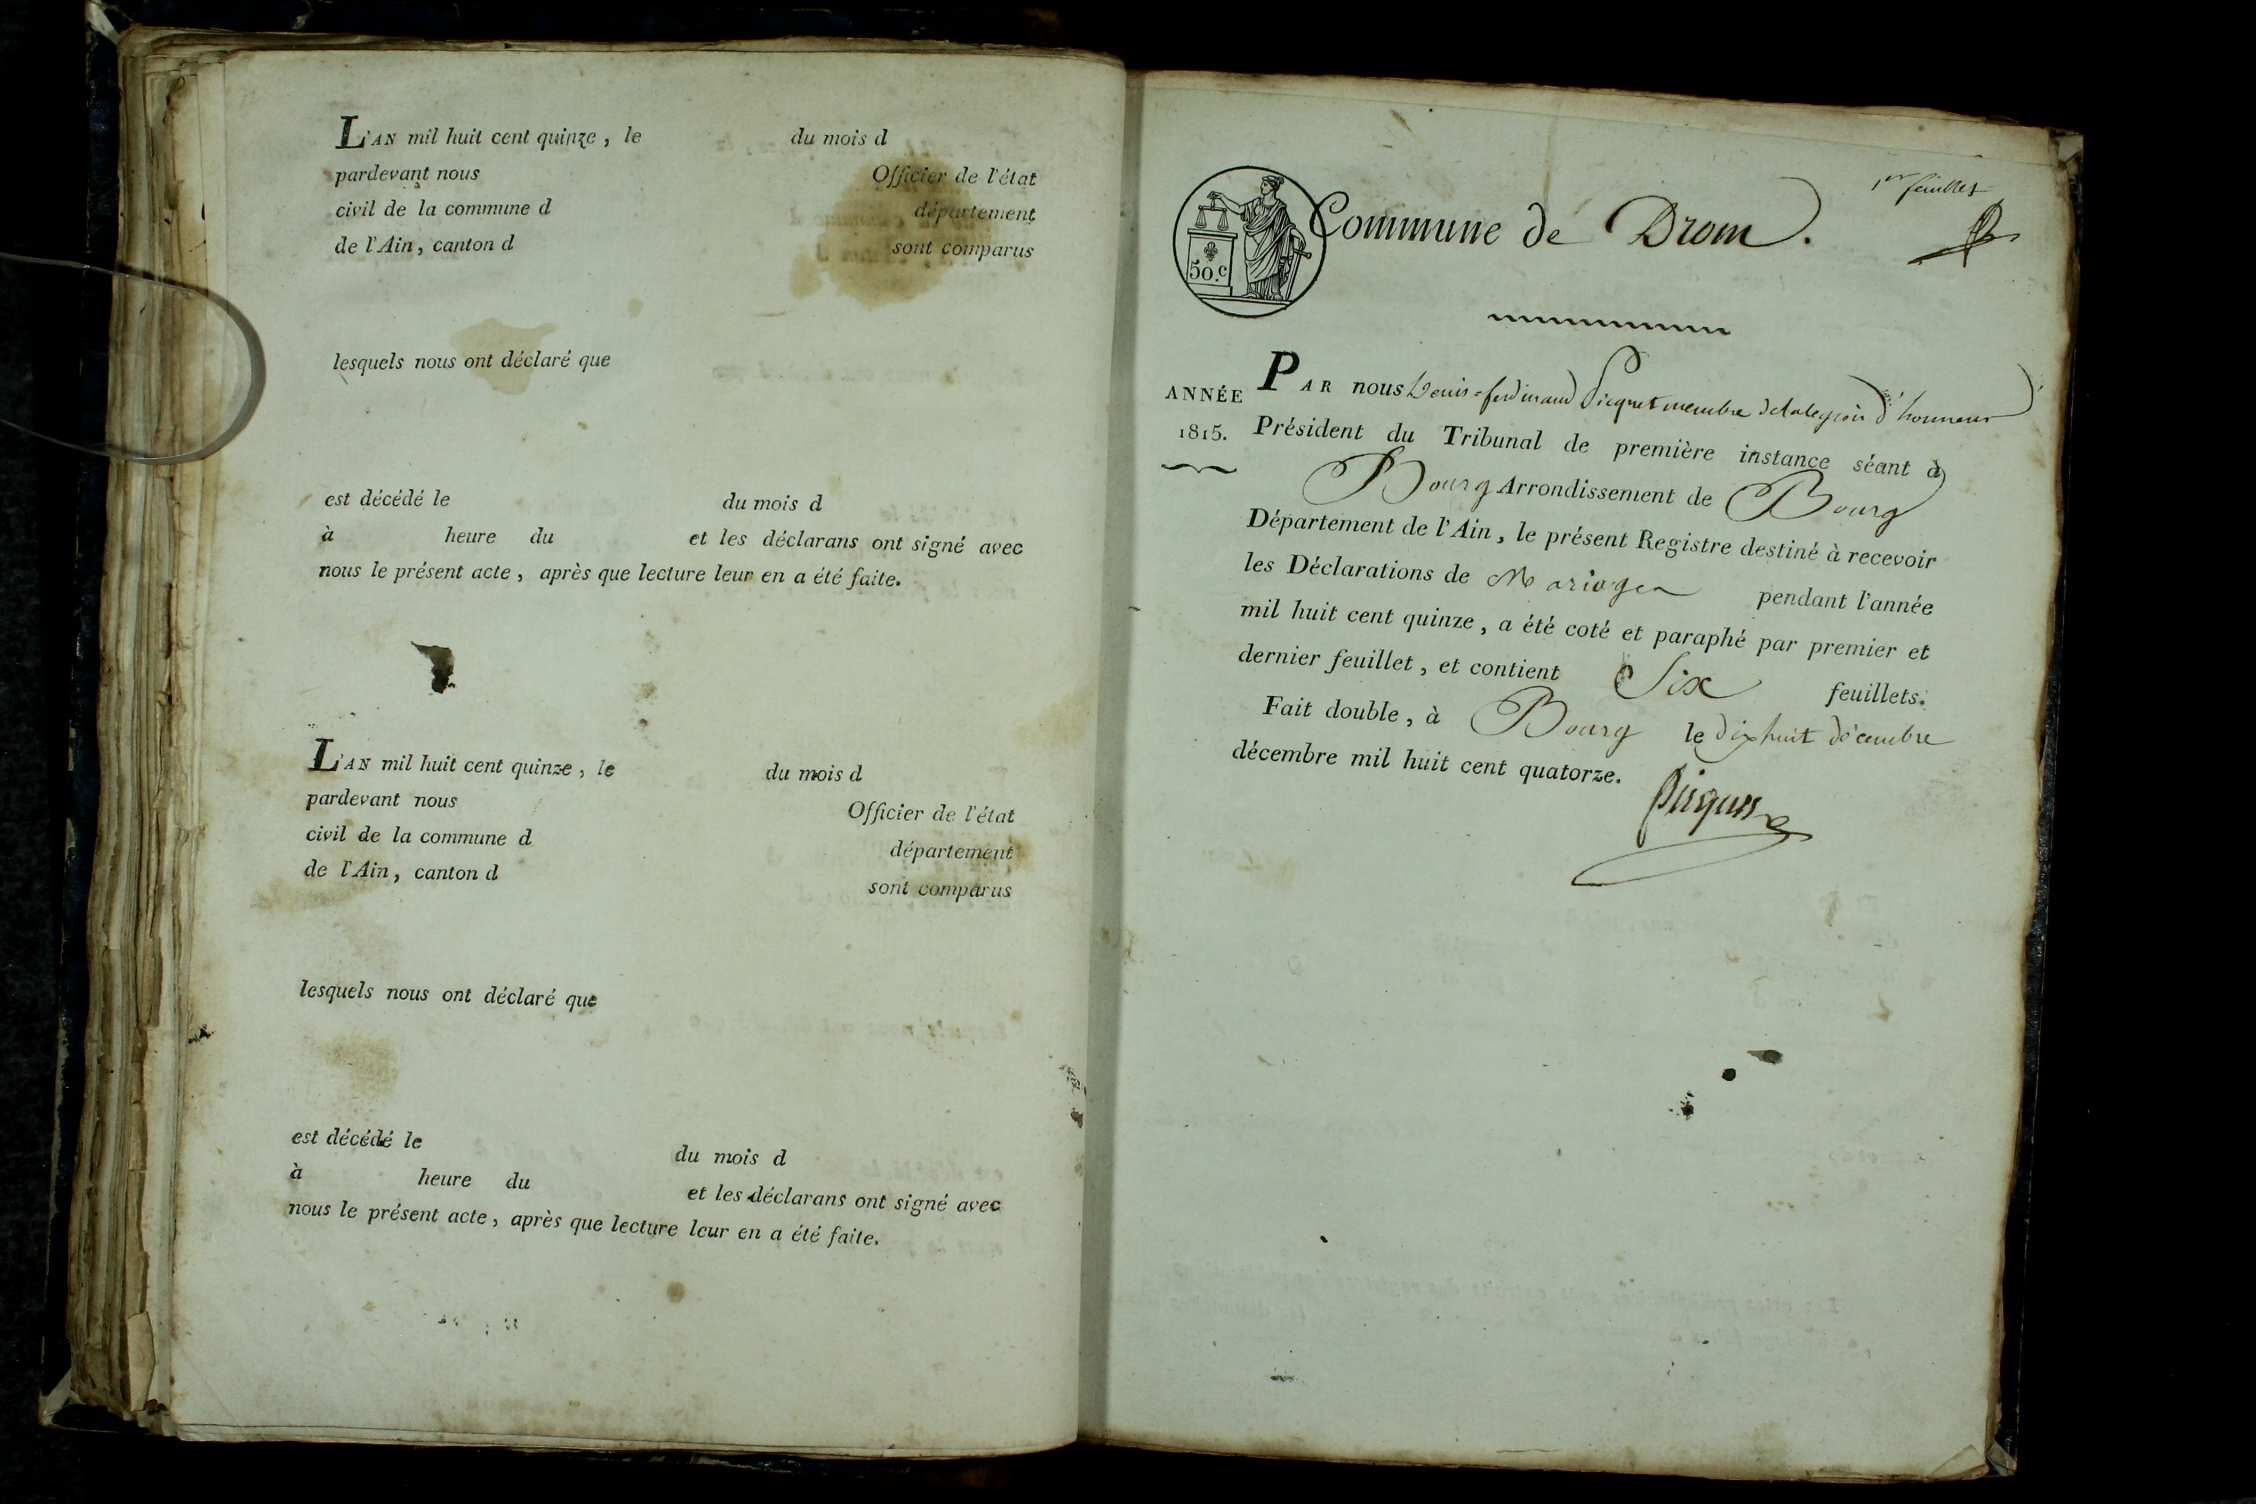 L'AN mil huit cent quinze, le du mois d
pardevant nous Officier de l'état
civil de la commune d département
de l'Ain, canton d sont comparus
lesquels nous ont déclaré que
est décédé le du mois d
à heure du et les déclarans ont signé avec
nous le présent acte, après que lecture leur en a été faite.
L'AN mil huit cent quinze, le du mois d
pardevant nous Officier de l'état
civil de la commune d département
de l'Ain, canton d sont comparus
lesquels nous ont déclaré que
est décédé le du mois d
à heure du et les déclarans ont signé avec
nous le présent acte, après que lecture leur en a été faite.
1er feuillet
50.c
Commune de Drom.
ANNÉE
1815.
PAR nous Denis=ferdinand Picquet membre de la legion d'honneur
Président du Tribunal de première instance séant à
Bourg Arrondissement de Bourg
Département de l'Ain, le présent Registre destiné à recevoir
les Déclarations de Mariages pendant l'année
mil huit cent quinze, a été coté et paraphé par premier et
dernier feuillet, et contient Six feuillets.
Fait double, à Bourg le dix huit décembre
décembre mil huit cent quatorze.
Picquet